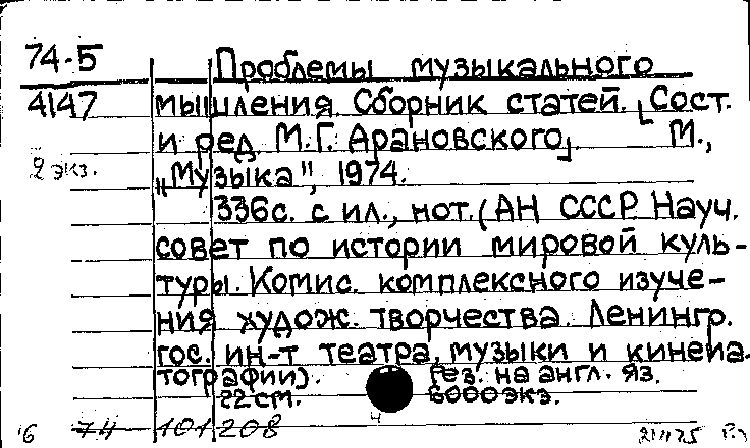 74-5 Проблемы музыкального
4147 мышления. Сборник статей. [Сост.
и ред. М.Г. Арановского]. М.,
2 экз. „Музыка", 1974.
336с. с ил., нот. (АН СССР. Науч.
совет по истории мировой куль-
туры. Комис. комплексного изуче-
ния худож. творчества. Ленингр.
гос. ин-т театра, музыки и кинема-
тографии). Рез. на англ. яз.
22 см. 6000 экз.
74 101208